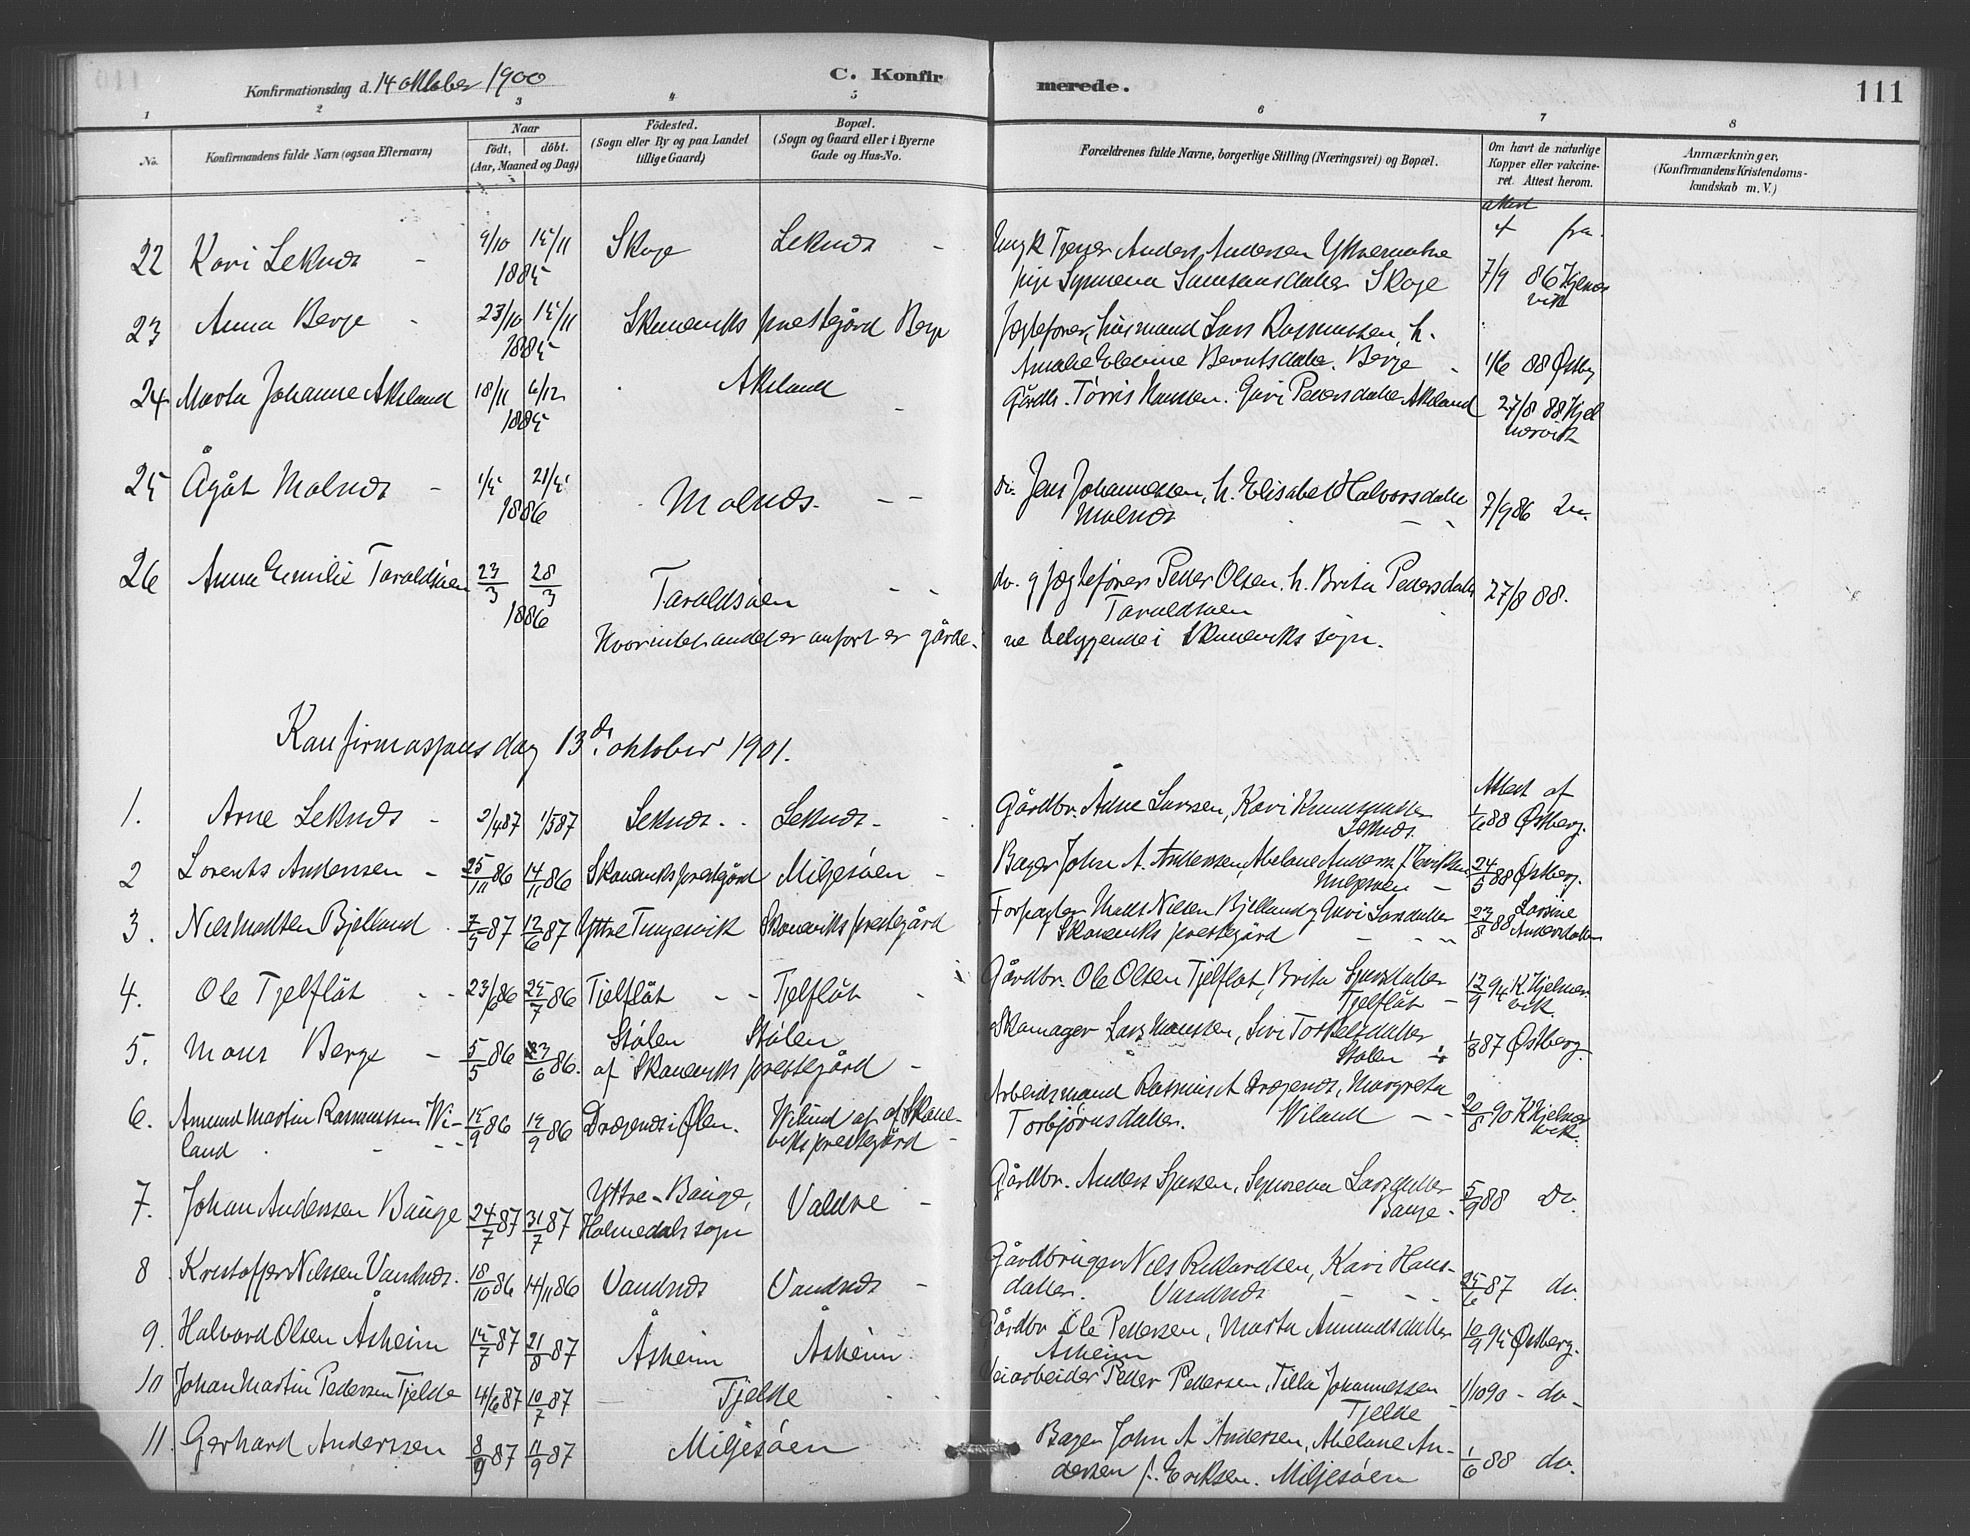 Konfirmationsdag d. 14 oktober 1900
C. Konfirmerede.
111
1 2 3 4 5 6 7 8
No.
Konfirmandens fulde Navn (ogsaa Efternavn)
Naar
født, døbt.
(Aar, Maaned og Dag)
Fødested.
(Sogn eller By og paa Landet
tillige Gaard)
Bopæl.
(Sogn og Gaard eller i Byerne
Gade og Hus-No.
Forældrenes fulde Navne, borgerlige Stilling (Næringsvei) og Bopæl.
Om havt de naturlige
Kopper eller vakcine-
ret. Attest herom.
Anmærkninger,
(Konfirmandens Kristendoms-
kundskab m. V.)
attest
22 Kari Leknes 9/10 15/11 1885 Skoge Leknes Ungk Anders Andersen
pige Synneva Samsonsdatter Skoge 7/9 86 Kjelnes
vik
23 Anna Berge 23/10 15/11 1885 Skaneviks prestegård Berge Jægtefører, husmand Lars Rasmussen, h.
Amalie Elevine Berntsdatter. Berge 1/6 88 Østby
24 Marta Johanne Akeland 18/11 6/12 1885 Akeland Gårdb. Tørris Hanssen. Guri Pedersdatter Akeland 27/8 88 Kjel
nesvik
25 Ågåt Molnes 1/5 21/5 1886 Molnes. Do. Jens Johannessen, h. Elisabet Halvorsdatter
Molnes 7/9 86 Do.
26 Anna Emilie Taraldsøen 23/3 28/3 1886 Taraldsøen do. g jægtefører Peder Olsen. h. Brita Pedersdatter
Taraldsøen 27/8 88.
Hvor intet andet er anført er gårdene beliggende i Skaneviks sogn.
Konfirmasjonsdag 13de oktober 1901.
Attest af
1. Arne Leknes 2/4 87 1/5 87 Leknes Leknes Gårdbr. Arne Larssen, Kari Knudsdatter
Leknes 1/6 88 Østberg.
2 Lorents Anderssen 25/10 86 14/11 86 Skaneviks prestegård Miljesøen Bager John A. Anderssen, Abelane Anderss. f. Eriksen
Miljesøen 24/5 88 Østberg.
3. Nils Madsen Bjelland 7/5 87 12/6 87 Yttre Tungesvik Skaneviks prestegård Forpagter Mats Nilsen Bjelland g Guri Larsdatter
Skaneviks prestegård 23/8 88 Larsine
Andersdatter
4. Ole Tjelflåt 23/6 86 25/7 86 Tjelflåt Tjelflåt Gårdbr. Ole Olsen Tjelflåt, Brita Sjursdatter
Tjelflåt 12/9 94 K. Kjelnes
vik.
5. Mons Berge 5/5 86 23/6 86. Stølen Stølen
af Skaneviks prestegård Skomager Lars Monssen, Siri Torkelsdatter
Stølen 1/8 87 Østberg
6. Amund Martin Rasmussen Wi-
land 15/9 86 19/9 86 Dragenes i Ølen. Wiland af Skane-
viks prestegård Arbeidsmand Rasmus A Dragenes, Margreta
Torbjørnsdatter. Wiland 20/8 90 K Kjelnes
vik.
7. Johan Anderssen Bauge 24/7 87 31/7 87 Yttre-Bauge,
Holmedals sogn Valdre Gårdbr. Anders Sjursen, Synneva Larsdatter
Bauge 5/9 88 Do.
8 Kristoffer Nilssen Vandnes. 18/10 86 14/11 86 Vandnes Vandnes Gårdbruger Nils Rikardsen, Kari Hans-
datter. Vandnes 25/6 87 do.
9. Halvard Olsen Åsheim 15/7 87 21/8 87 Åsheim Åsheim Gårdbr Ole Pedersen, Marta Amundsdatter
Åsheim 10/9 95 Østberg.
10 Johan Martin Pedersen Tjelde 4/6 87 10/7 87 Tjelde Veiarbeider Peder Pedersen, Tilla Johannessen
Tjelde 1/10 90 - do-
11. Gerhard Anderssen 8/9 87 11/9 87 Miljesøen Bager John A Andersen, Abelane An-
dersen f. Eriksen. Miljesøen 1/6 88 do.